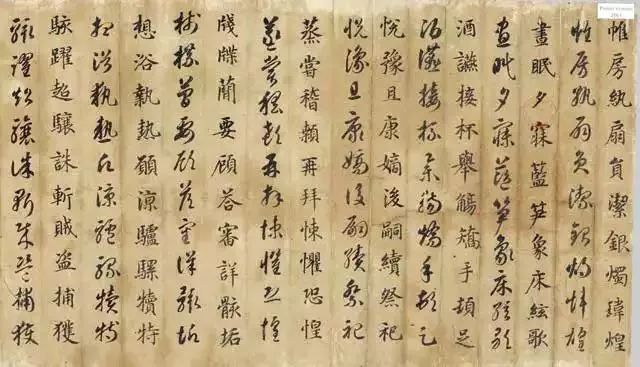 Pelliot chinois
3561
帷房紈扇員潔銀燭煒煌
帷房紈扇員潔銀燭煒煌
晝眠夕寐籃笋象床絃歌
晝眠夕寐籃笋象床絃歌
酒讌接杯舉觴矯手頓足
酒讌接杯舉觴矯手頓足
悅豫且康嫡後嗣續祭祀
悅豫且康嫡後嗣續祭祀
蒸嘗稽顙再拜悚懼恐惶
蒸嘗稽顙再拜悚懼恐惶
牋牒簡要顧答審詳骸垢
牋牒簡要顧答審詳骸垢
想浴執熱願涼驢騾犢特
想浴執熱願涼驢騾犢特
駭躍超驤誅斬賊盜捕獲
駭躍超驤誅斬賊盜捕獲